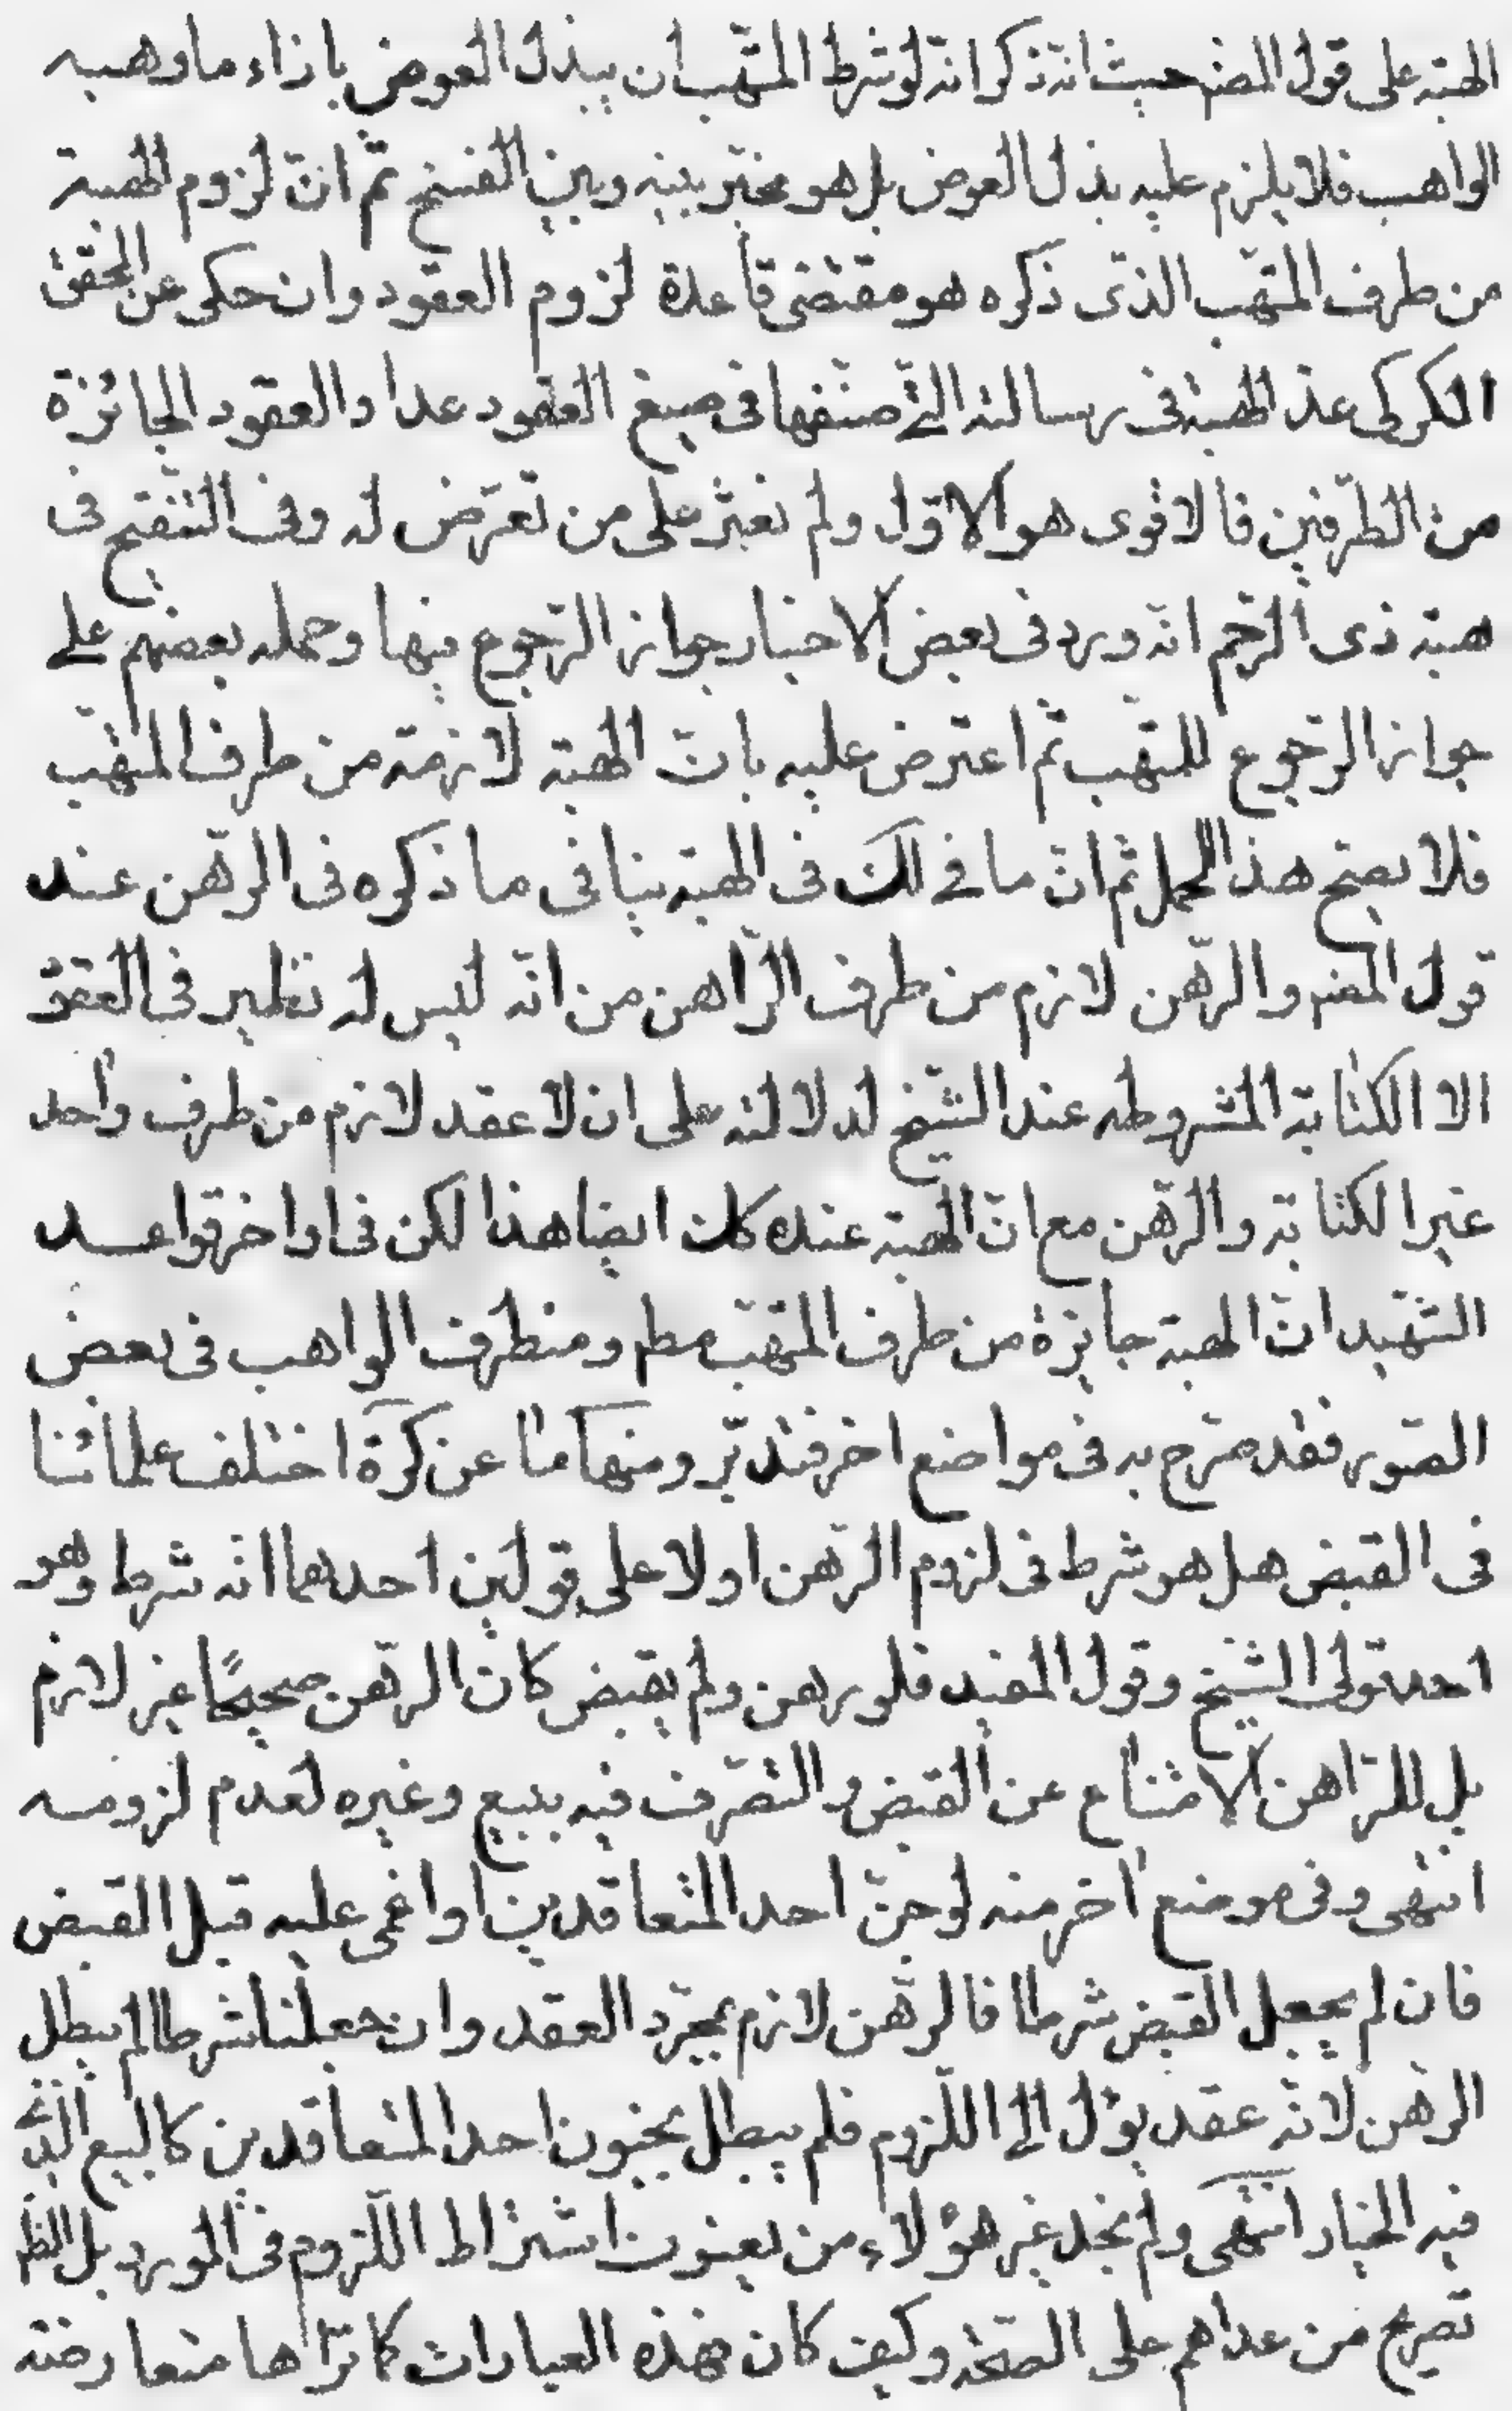 الهبة على قول المضم حيث انه ذكر انه لو شرط المتهب ان يبذل العوض بازاء ما وهبه
الواهب فلا يلزم عليه بذل العوض بل هو مخير بينه وبين الفسخ ثم ان لزوم الهبة
من طرف المتهب الذى ذكره هو مقتضى قاعدة لزوم العقود وان حكى عن المحقق
الكركى عد الهبة فى رسالته التى صنفها فى صيغ العقود عداد العقود الجائزة
من الطرفين فالاقوى هو الاول ولم نعثر على من تعرض له وفى التنقيح فى
هبة ذى الرحم انه ورد فى بعض الاخبار جواز الرجوع فيها وحمله بعضهم على
جواز الرجوع للمتهب ثم اعترض عليه بان الهبة لازمة من طرف المتهب
فلا يصح هذا الحمل ثم ان ما فى لك فى الهبة ينافى ما ذكره فى الرهن عند
قول المضم والرهن لازم من طرف الراهن من انه ليس له نظير فى العقود
الا الكتابة المشروطه عند الشيخ لدلالته على ان لا عقد لازم من طرف واحد
غير الكتابة والرهن مع ان الهبة عنده كك ايضا هذا لكن فى اواخر قواعد
الشهيد ان الهبة جايزة من طرف المتهب مطم ومن طرف الواهب فى بعض
الصور فقد صرح به فى مواضع اخر فتدبر ومنها ما عن كرة اختلف علمائنا
فى القبض هل هو شرط فى لزوم الرهن اولا على قولين احدهما انه شرط وهو
احد قولى الشيخ وقول المفيد فلو رهن ولم يقبض كان الرهن صحيحًا غير لازم
بل للراهن الامتناع عن القبض والتصرف فيه ببيع وغيره لعدم لزومه
انتهى وفى موضع اخر منه لو جن احد المتعاقدين او اغمى عليه قبل القبض
فان لم يجعل القبض شرطا فالرهن لازم بمجرد العقد وان جعلناه شرطا لم يبطل
الرهن لانه عقد يؤل الى اللزوم فلم يبطل بجنون احد المتعاقدين كالبيع الذى
فيه الخيار انتهى ولم نجد غير هؤلاء من يعنون اشتراط اللزوم فى المورد بل الظ
تصريح من عداهم على الصحة وكيف كان فهذه العبارات كما تراها متعارضة